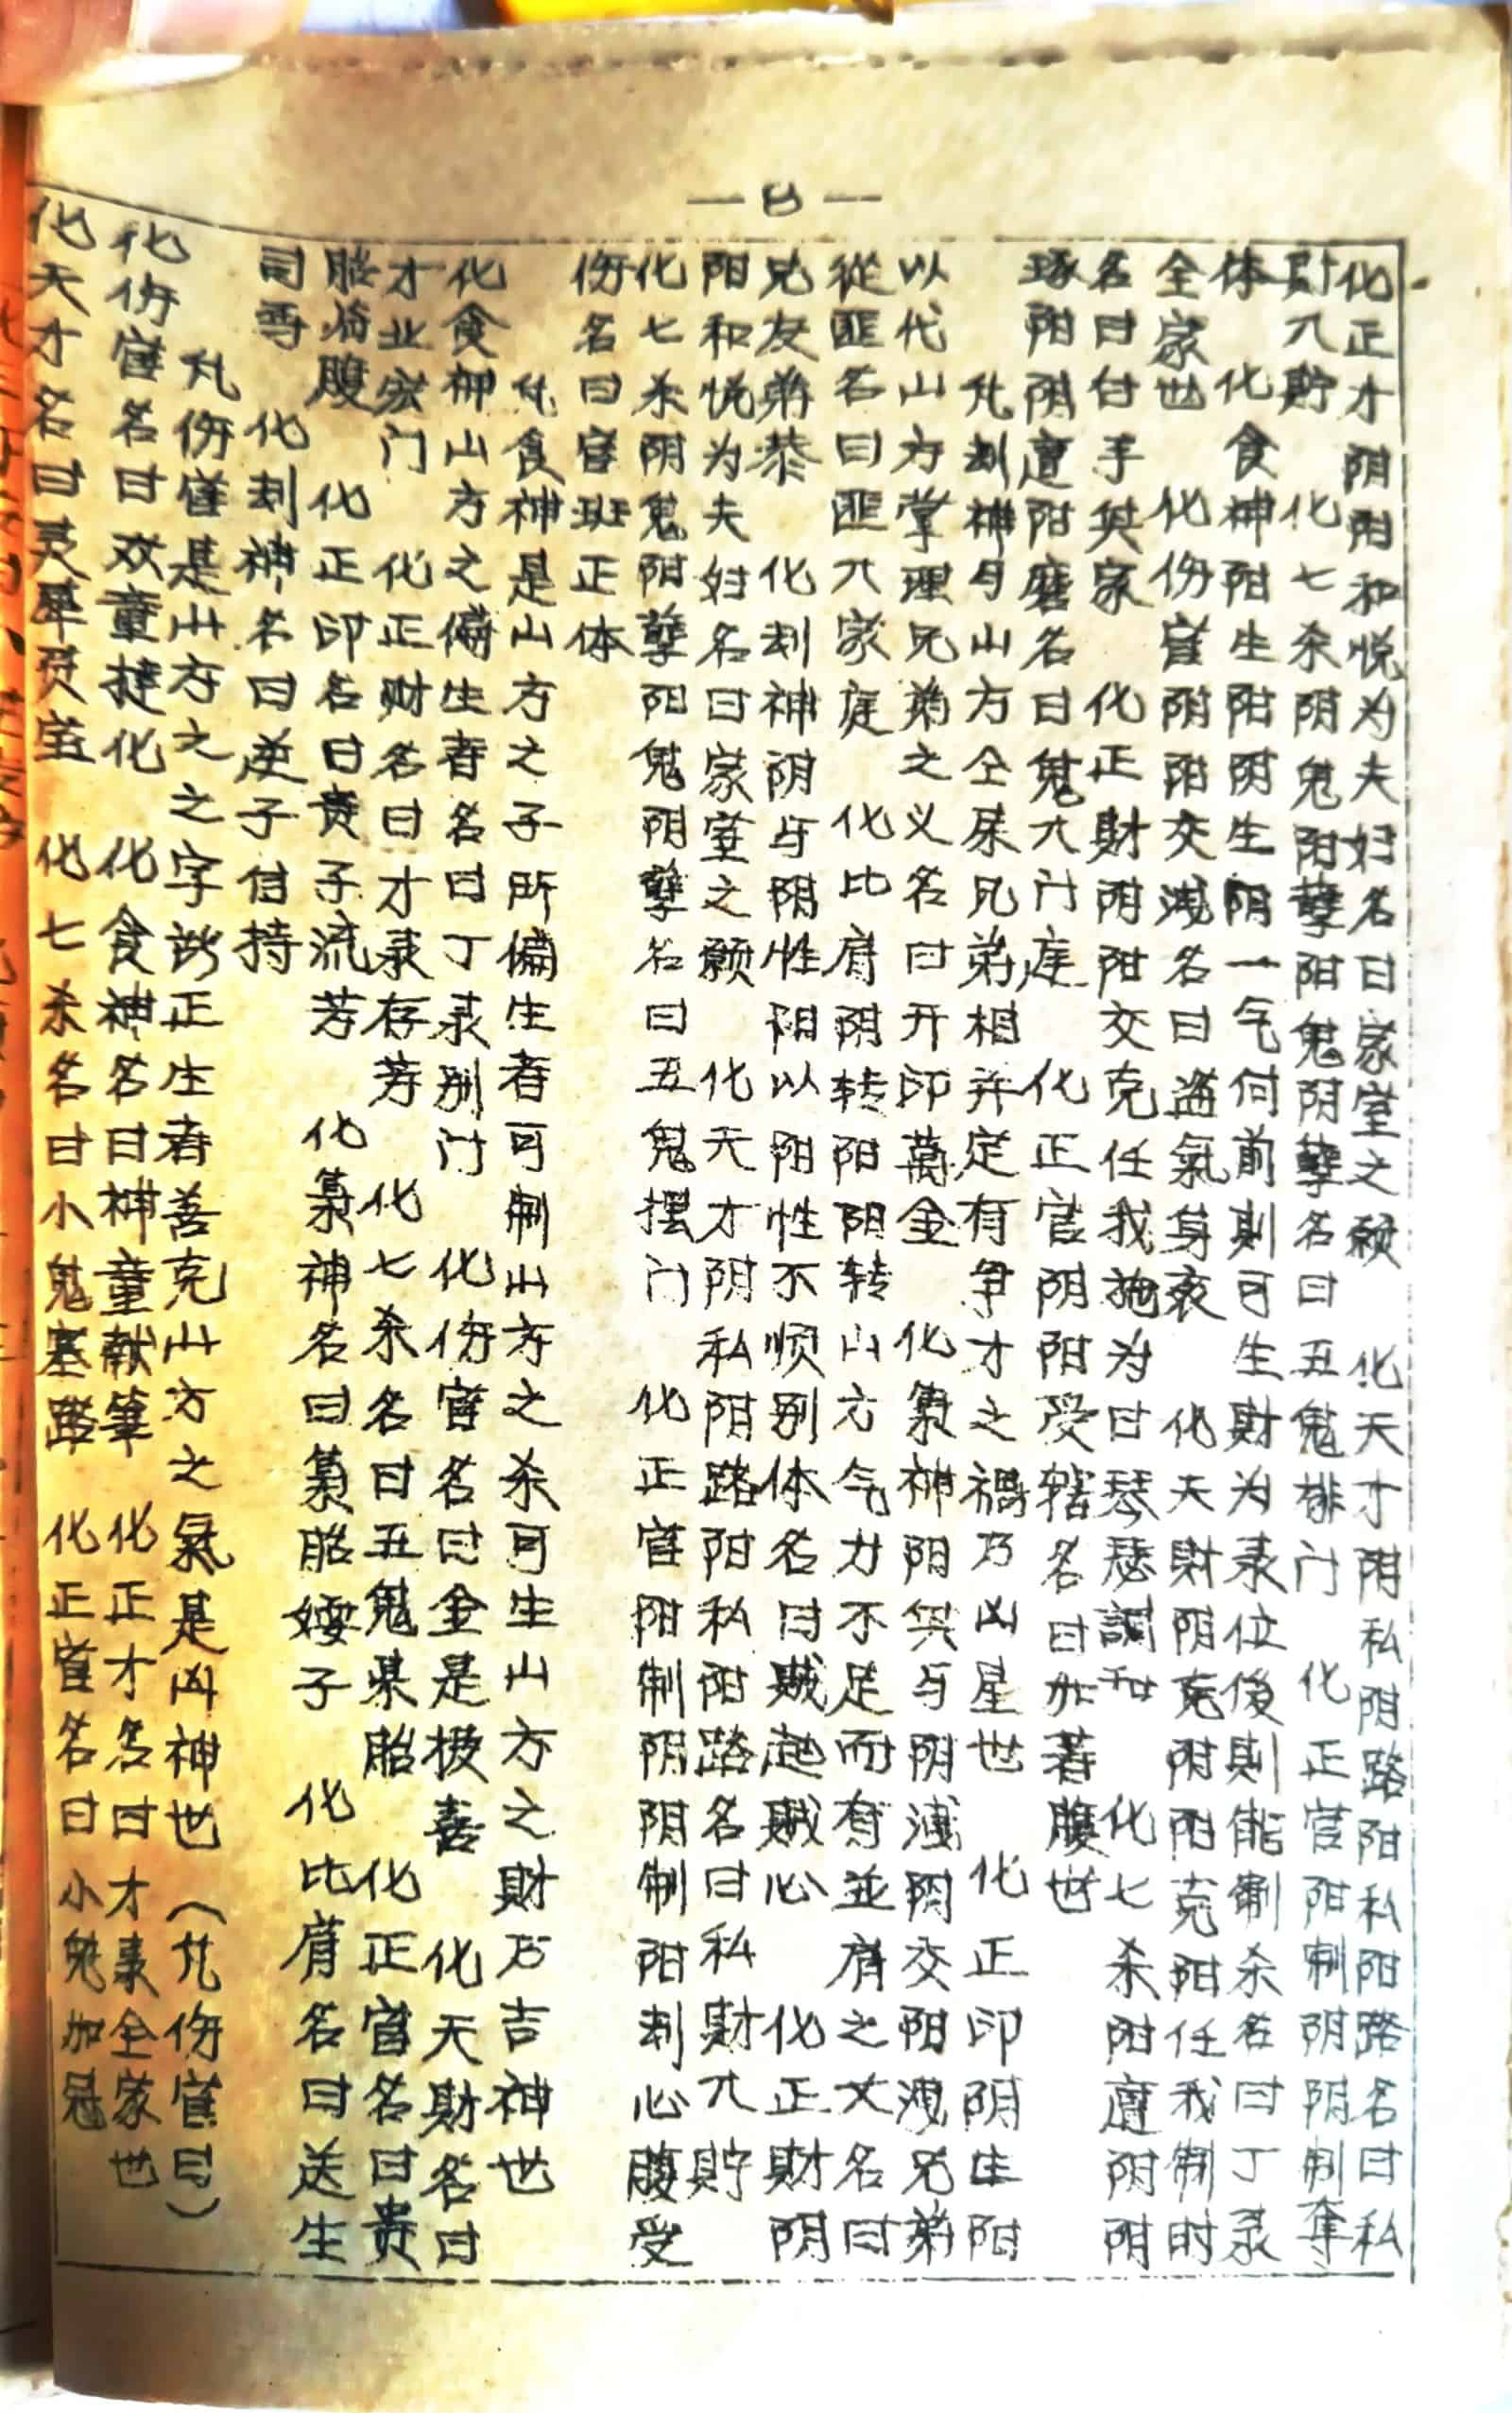 — 8 —
化正才阴阳和悦为夫妇名曰家堂之顺 化天才阴私阴路阳私阳路名曰私
財入貯 化七杀阴鬼阳孽阳鬼阴孽名曰五鬼排门 化正官阳制阴阴制奪
体 化食神阳生阳阴生阴一气何前则可生財为录位後則能制杀名曰丁录
全家也 化伤官阴阳交洩名曰盗氣身衰 化天財阴克阴阳克阳任我制时
名曰付手興家 化正財阴阳交克任我拖为曰琴瑟調和 化七杀阳遭阴阴
琢阳阴遭阳磨名曰鬼入门庭 化正官阴阳受辖名曰加著腹也
凡刦神与山方仝屎兄弟相并定有争才之禍乃凶星也 化正印阴生阳
以代山方掌理兄弟之义名曰开印萬金 化梟神阴兴与阴洩阴交阳洩兄弟
從匪名曰匪入家庭 化比肩阴转阳阴转山方气力不足而有並肩之丈名曰
兄友弟恭 化刦神阴与阴性阳以阳性不顺别体名曰贼起贼心 化正財阴
阳和悦为夫妇名曰家堂之顺 化天才阴私阳路阳私阳路名曰私財入貯
化七杀阴鬼阳孽阳鬼阴孽名曰五鬼摆门 化正官阳制阴阴制阳刺心腹受
伤名曰官班正体
凡食神是山方之子所偏生者可制山方之杀可生山方之財乃吉神也
化食神山方之偏生者名曰丁录别门 化伤官名曰金是极喜 化天財名曰
才北宏门 化正财名曰才录存芳 化七杀名曰五鬼果胎 化正官名曰贵
胎临腹 化正印名曰贵子流芳 化梟神名曰梟胎婑子 化比肩名曰送生
司尋 化刦神名曰逆子自持
凡伤官是山方之之字所正生者善克山方之氣是凶神也（凡伤官曰）
化伤官名曰欢童撻化 化食神名曰神童献筆 化正才名曰才录全家也
化天才名曰灵犀贡宝 化七杀名曰小鬼塞路 化正官名曰小鬼加冠